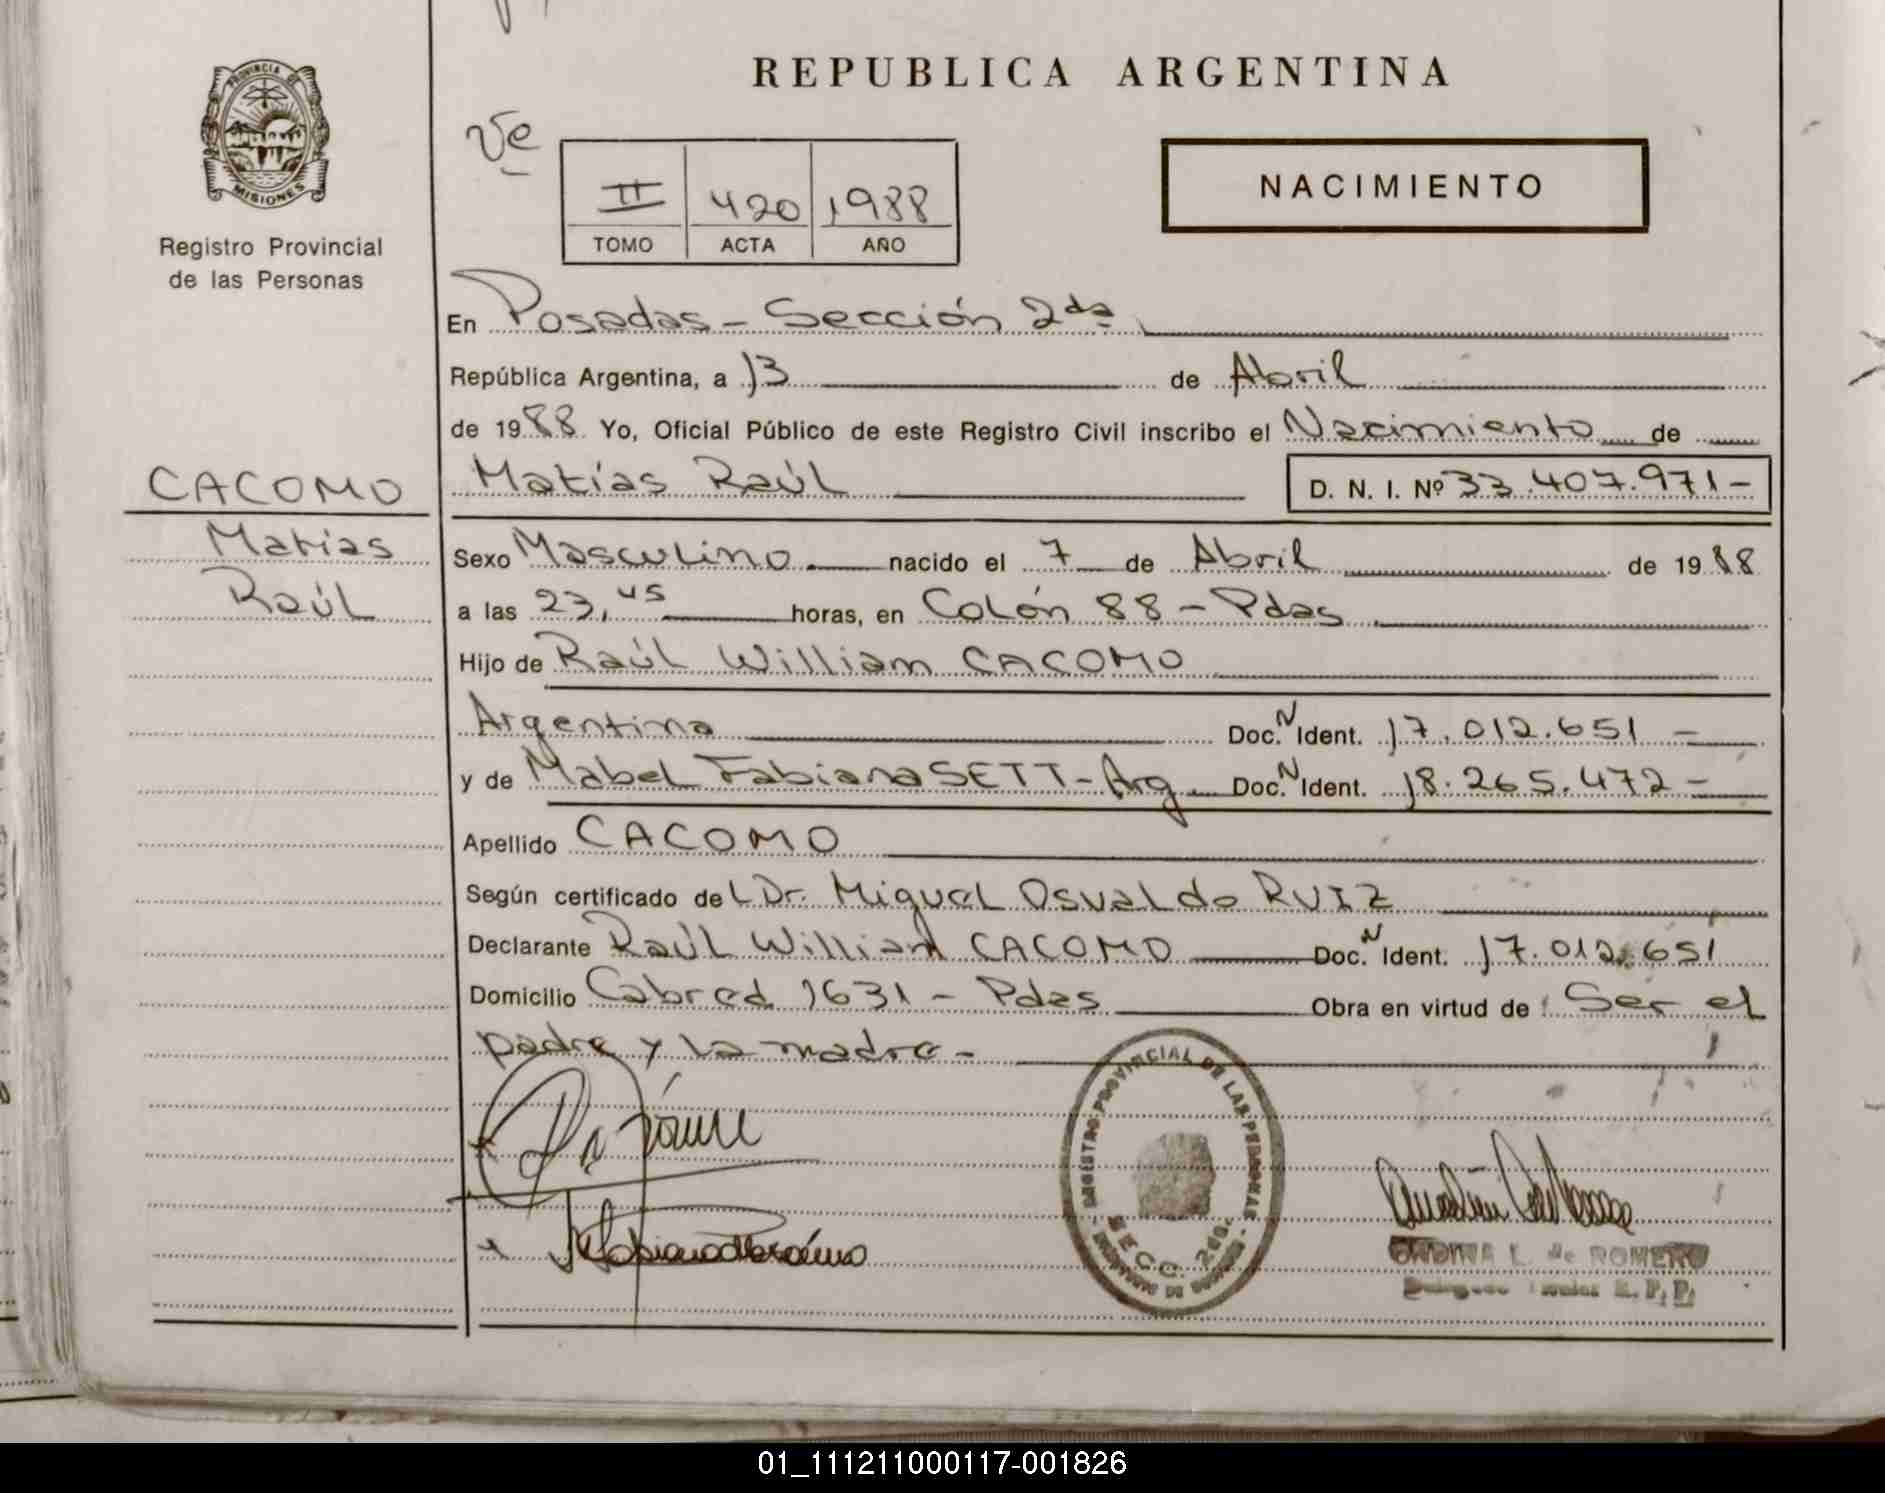 REPUBLICA ARGENTINA
PROVINCIA DE
MISIONES
Registro Provincial
de las Personas
Ve
II 420 1988
TOMO ACTA AÑO
NACIMIENTO
En Posadas - Sección 2da
República Argentina, a 13 de Abril
de 1988 Yo, Oficial Público de este Registro Civil inscribo el Nacimiento de
Matías Raúl D. N. I. Nº 33.407.971-
CACOMO
Matías
Raúl
Sexo Masculino nacido el 7 de Abril de 1988
a las 23,45 horas, en Colón 88 - Pdas
Hijo de Raúl William CACOMO
Argentina Doc. N Ident. 17.012.651 -
y de Mabel Fabiana SETT - Arg Doc. N Ident. 18.265.472 -
Apellido CACOMO
Según certificado del Dr. Miguel Osvaldo RUIZ
Declarante Raúl William CACOMO Doc. N Ident. 17.012.651
Domicilio Cabred 1631 - Pdas Obra en virtud de: Ser el
padre y la madre -
REGISTRO PROVINCIAL DE LAS PERSONAS
SECC. 2da.
ONDINA L. de ROMERO
R. P. P.
01_111211000117-001826